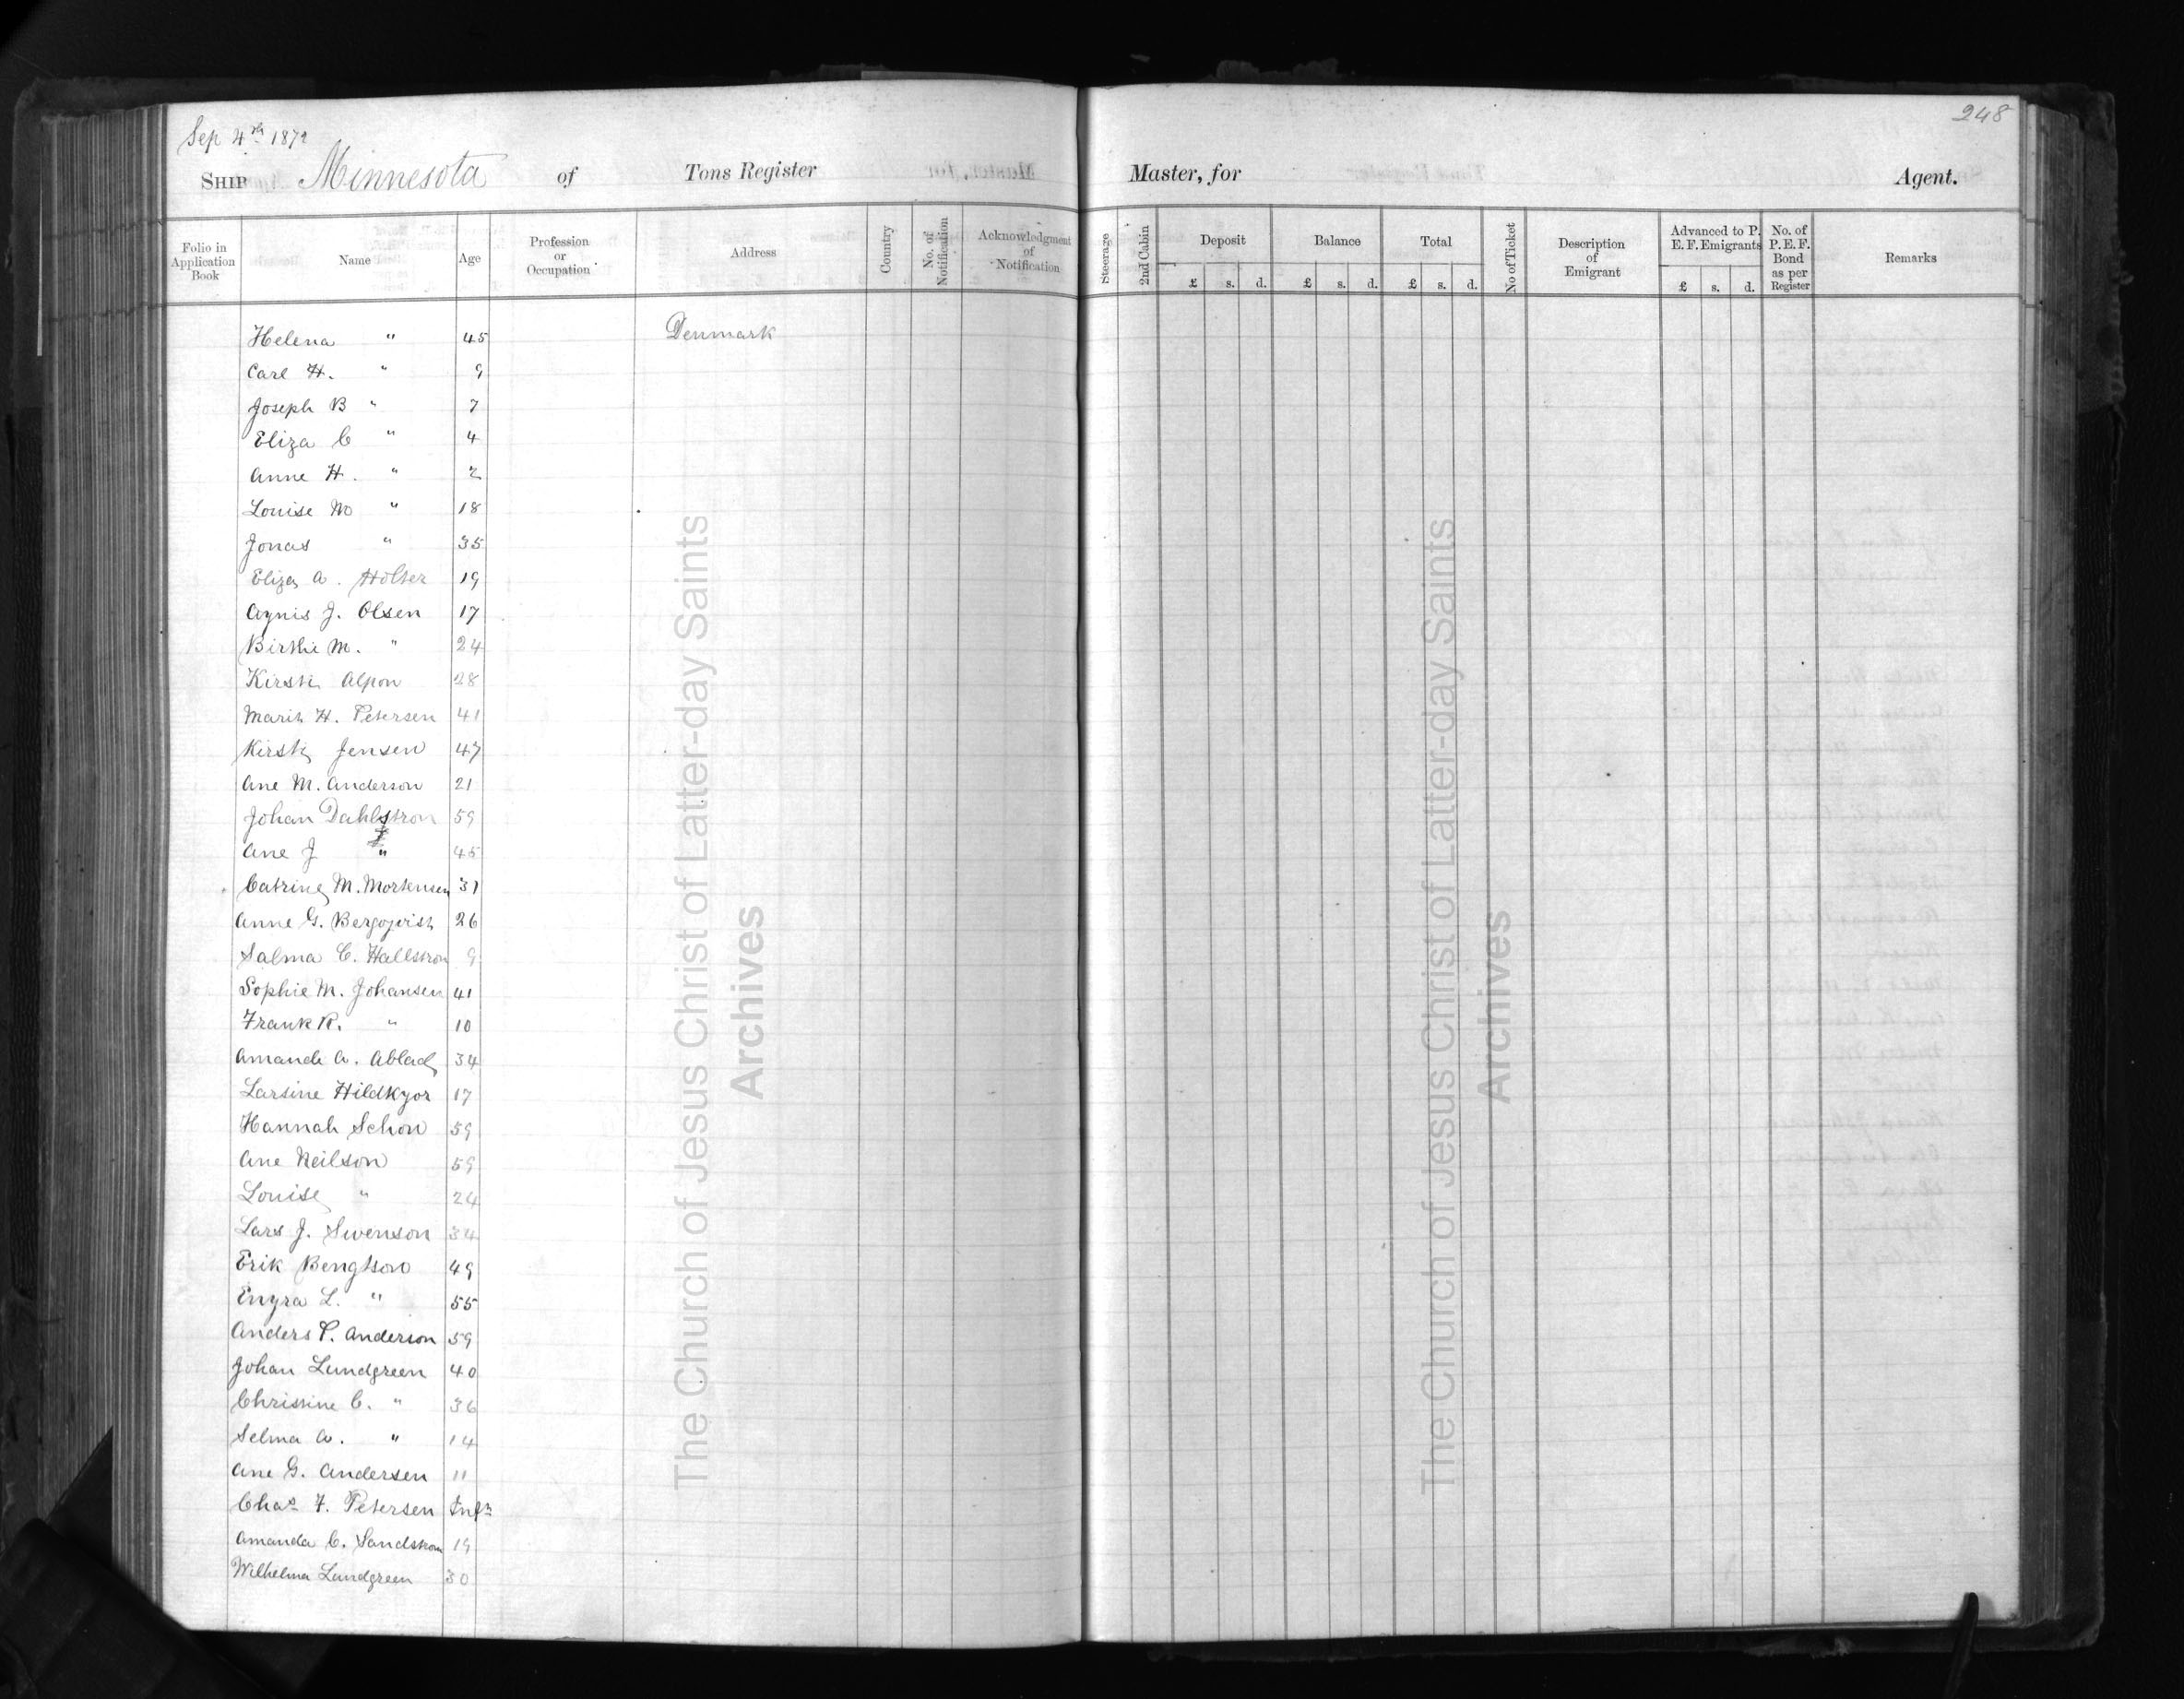 248
Sep 4th 1872
SHIP Minnesota of Tons Register Master, for Agent.
Folio in Application Book Name Age Profession or Occupation Address Country No. of Notification Acknowledgment of Notification Steerage 2nd Cabin Deposit £ s. d. Balance £ s. d. Total £ s. d. No of Ticket Description of Emigrant Advanced to P. E. F. Emigrants £ s. d. No. of P. E. F. Bond as per Register Remarks
Helena " 45 Denmark
Carl H. " 9
Joseph B " 7
Eliza C " 4
Anne H. " 2
Louise M " 18
Jonas " 35
Eliza A. Holter 19
Agnis J. Olsen 17
Birthe M. " 24
Kirsti Alpon 28
Marit H. Petersen 41
Kirsti Jensen 47
Ane M. Anderson 21
Johan Dahlstron 59
Ane J " 45
Catrine M. Mortensen 31
Anne G. Bergqvist 26
Salma C. Hallstron 9
Sophie M. Johansen 41
Frank R. " 10
Amanda A. Ablad 34
Larsine Hildkyor 17
Hannah Schon 59
Ane Neilson 59
Louise " 24
Lars J. Swenson 34
Erik Bengtson 49
Engra L. " 55
Anders P. Anderson 59
Johan Lundgreen 40
Christine C. " 36
Selma A. " 14
Ane G. Andersen 11
Chas F. Petersen Inft
Amanda C. Sandstrom 19
Wilhelma Lundgreen 30
The Church of Jesus Christ of Latter-day Saints
Archives
The Church of Jesus Christ of Latter-day Saints
Archives